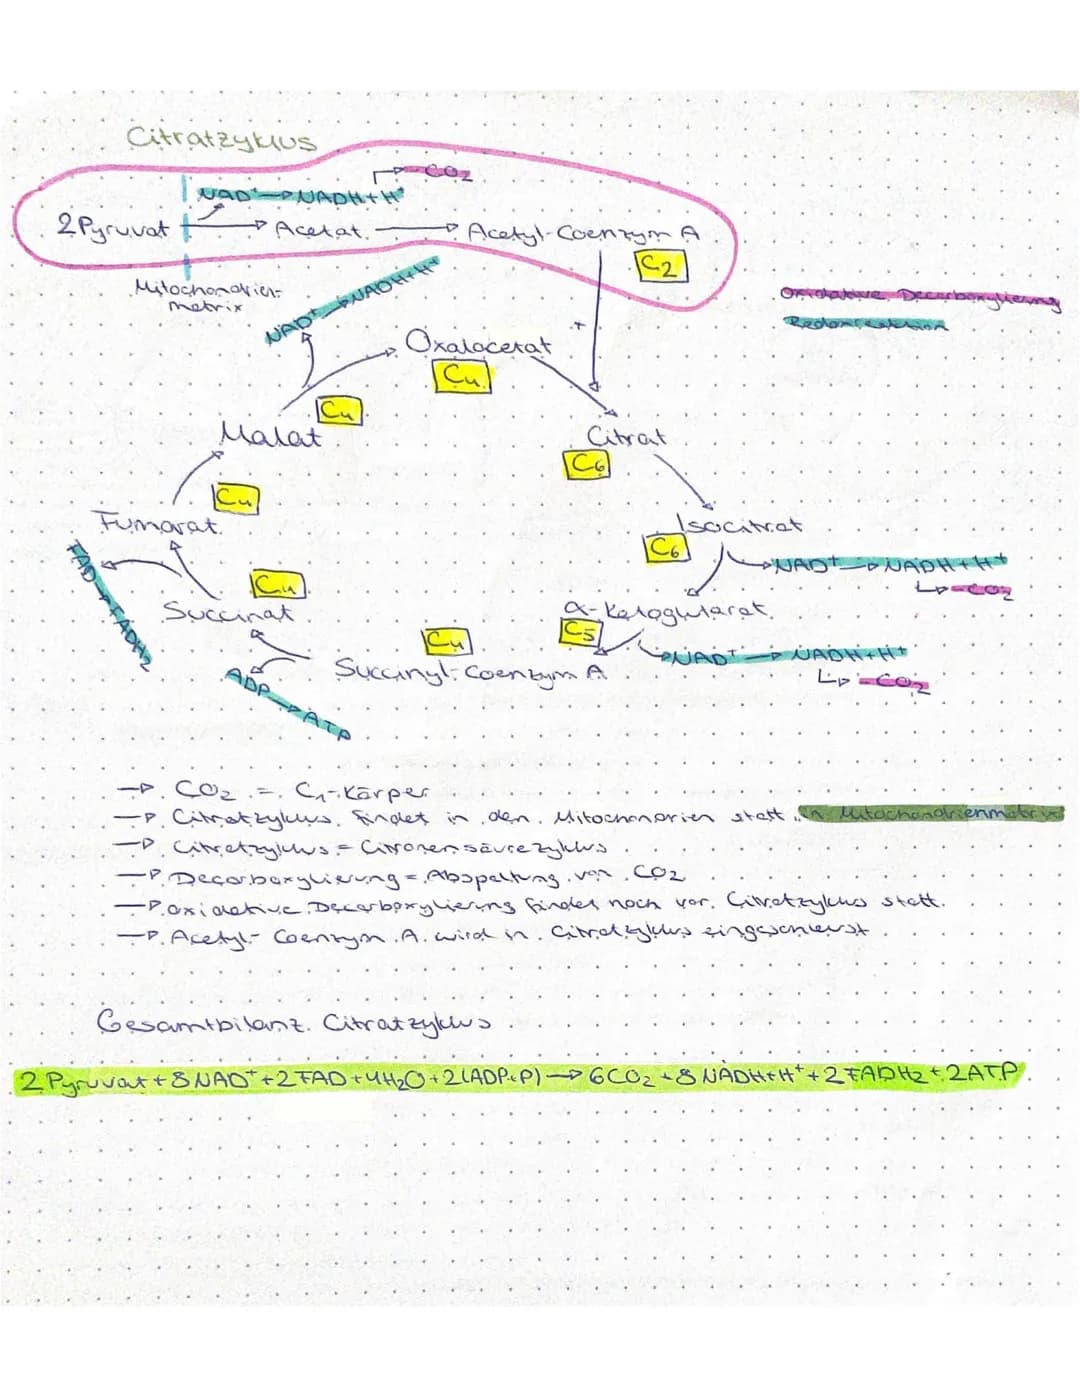 Citratzyklus
CO2
NAD+ → NADH+H+
2 Pyruvat → Acetat → Acetyl-Coenzym A
C2
Mitochondrien-
matrix
Oxidative Decarboxylierung
Redoxreaktion
NAD+ → NADH+H+
+
Oxalacetat
C4
C4
Malat
Citrat
C6
C4
Fumarat
Isocitrat
C6
NAD+ → NADH+H+
↳ -CO2
FAD → FADH2
C4
Succinat
α-Ketoglutarat
C5
C4
NAD+ → NADH+H+
Succinyl-Coenzym A
↳ -CO2
ADP → ATP
→ CO2 = C1-Körper
→ Citratzyklus findet in den Mitochondrien statt in Mitochondrienmatrix
→ Citratzyklus = Citronensäurezyklus
→ Decarboxylierung = Abspaltung von CO2
→ oxidative Decarboxylierung findet noch vor Citratzyklus statt
→ Acetyl-Coenzym A wird in Citratzyklus eingeschleust
Gesamtbilanz Citratzyklus
2 Pyruvat + 8 NAD+ + 2 FAD + 4H2O + 2(ADP+P) → 6CO2 + 8 NADH+H+ + 2 FADH2 + 2ATP